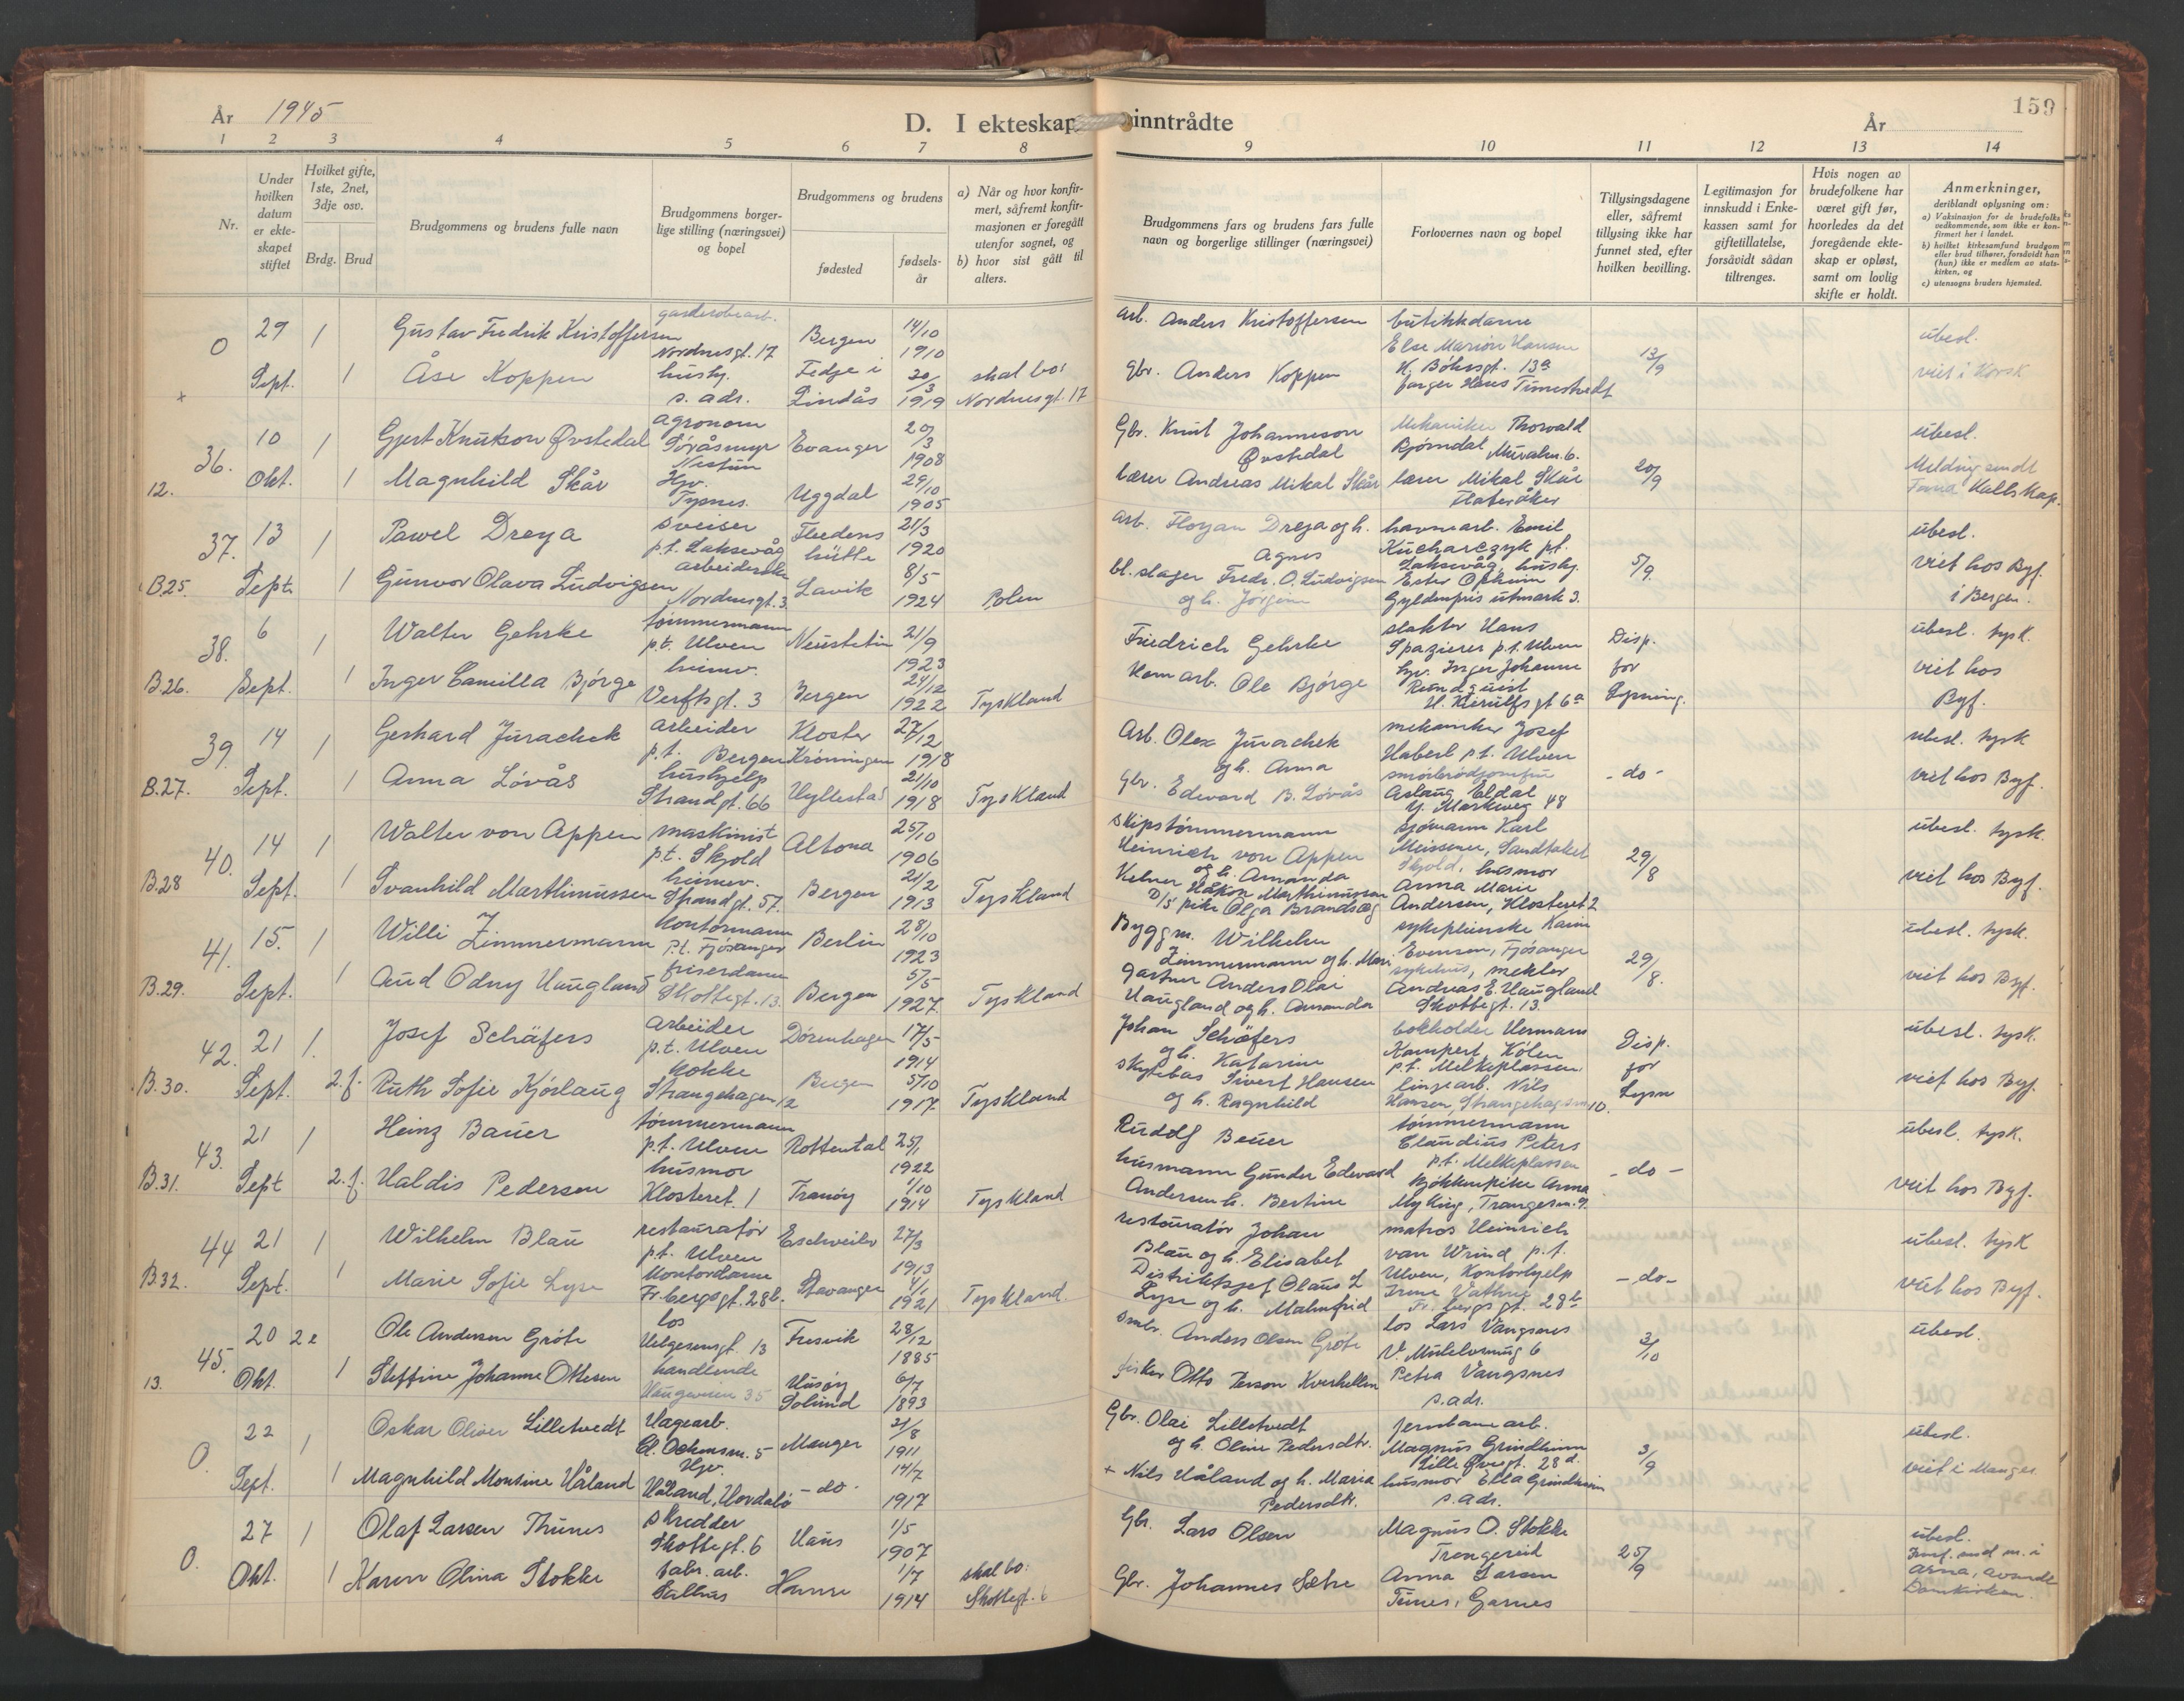 År 1945
D. I ekteskap inntrådte
År
159
1 2 3 4 5 6 7 8 9 10 11 12 13 14
Nr.
Under hvilken datum er ekteskapet stiftet
Hvilket gifte, 1ste, 2net, 3dje osv.
Brdg. Brud
Brudgommens og brudens fulle navn
Brudgommens borgerlige stilling (næringsvei) og bopel
Brudgommens og brudens
fødested
fødselsår
a) Når og hvor konfirmert, såfremt konfirmasjonen er foregått utenfor sognet, og
b) hvor sist gått til alters.
Brudgommens fars og brudens fars fulle navn og borgerlige stillinger (næringsvei)
Forlovernes navn og bopel
Tillysingsdagene eller, såfremt tillysing ikke har funnet sted, efter hvilken bevilling.
Legitimasjon for innskudd i Enkekassen samt for giftetillatelse, forsåvidt sådan tiltrenges.
Hvis nogen av brudefolkene har været gift før, hvorledes da det foregående ekteskap er opløst, samt om lovlig skifte er holdt.
Anmerkninger, deriblandt oplysning om:
a) Vaksinasjon for de brudefolks vedkommende, som ikke er konfirmert her i landet.
b) hvilket kirkesamfund brudgom eller brud tilhører, forsåvidt han (hun) ikke er medlem av statskirken, og
c) utensogns bruders hjemsted.
0 29 Sept. 1 Gustav Fredrik Kristoffersen Nordnesgt. 17 Bergen 14/10 1910
1 Åse Koppen hushj. s. adr. Fedje i Lindås 20/3 1919 skal bo: Nordnesgt. 17
arb. Anders Kristoffersen butikkdame Else Marion Hansen
Gbr. Anders Koppen 13/9
ubesl.
36. 12. 10 Okt. 1 Gjert Knutson Øvstedal agronom Søråsmyr Nestun Evanger 20/3 1908
1 Magnhild Skår Hjv. Tysnes. Uggdal 29/10 1905
Gbr. Knut Johanneson Øvstedal Mekaniker Thorvald Bjørndal
lærer Andreas Mikal Skår lærer Mikal Skår Flateråker 20/9
ubesl. Melding sendt
37. B.25. 13 Sept. 1 Pawel Dreya sveiser p.t. Laksevåg 21/3 1920
1 Gunvor Olava Ludvigsen arbeiderske Nordnesgt. 3 Lavik 8/5 1924 Polen
arb. Floryan Dreja og h. Agnes havnearb. Emil Kucharczyk pt. Laksevåg, hushj.
bl.slager Fredr. O. Ludvigsen og h. Gyldenpris utmark 3. 5/9.
ubesl. viet hos Byf. i Bergen.
38. B.26. 6 Sept. 1 Walter Gehrke tømmermann p.t. Ulven Neustetin 21/9 1923
1 Inger Camilla Bjørge heimv. Verftsgt. 3 Bergen 24/12 1922 Tyskland
Friedrich Gehrke slakter Hans Spazierer p.t. Ulven Disp. for Lysning.
Kom arb. Ole Bjørge hjv. Inger Johanne H. Kierulfs gt 6a
ubesl. tysk. viet hos Byf.
39. B.27. 14 Sept. 1 Gerhard Jurachek arbeider p.t. Bergen Kloster Krøningen 27/12 1918
1 Anna Løvås hushjelp Strandgt. 66 Hyllestad 21/10 1918 Tyskland
Arb. Olex Jurachek og h. Anna mekaniker Josef Haberl p.t. Ulven
Gbr. Edward B. Løvås smørbrødjomfru Aslaug Eldal Y. Markveg 48 - do -
ubesl. tysk viet hos Byf.
40. B.28 14 Sept. 1 Walter von Appen maskinist p.t. Skjold Altona 25/10 1906
1 Svanhild Marthinussen heimev. Strandgt. 57. Bergen 21/2 1913 Tyskland
skipstømmermann Heinrich von Appen og h. Amanda sjømann Karl Meissener, Sandtaket Skjold, husmor
Kelner Håkon Marthinussen D/S pike Olga Brandsæg Anna Marie Andersen, Klosteret 2 29/8
ubesl. tysk. viet hos Byf.
41. B.29. 15. Sept. 1 Willi Zimmermann kontormann p.t. Fjøsanger Berlin 28/10 1923
1 Aud Odny Haugland friserdame Skottegt. 13. Bergen 5/5 1927. Tyskland
Byggm. Wilhelm Zimmermann og h. Mari sykepleierske Karin Evensen, Fjøsanger sykehus, mekler
gartner Anders Olai Haugland og h. Amanda Andreas E. Haugland Skottegt. 13. 29/8.
ubesl. tysk. viet hos Byf.
42. B.30. 21 Sept. 1. Josef Schäfers arbeider p.t. Ulven Dörenhagen 17/5 1914
2.f. Ruth Sofie Kjórlaug kokke Strangehagen 12 Bergen 5/10 1917. Tyskland
Johan Schäfers og h. Katarine bokholder Hermann Kampert Kölen p.t. Melkeplassen
Sivert Hansen og h. Ragnhild linjearb. Nils Hansen, Strangehagen 10. Disp. for Lysn
ubesl. tysk. viet hos Byf.
43. B.31. 21 Sept 1 Heinz Bauer tømmermann p.t. Ulven Rottental 25/1 1922
2.f. Haldis Pedersen husmor Klosteret 1 Tranøy 1/10 1914 Tyskland
Rudolf Beuer tømmermann Claudius Peters p.t. Melkeplassen
husmann Gunder Edvard Andersen h. Bertine kjøkkenpike Anna Myking, Trangesm. 9. - do -
ubesl. tysk. viet hos Byf.
44 B.32. 21 Sept. 1 Wilhelm Blau restauratør p.t. Ulven Eschweiler 27/3 1913
1 Marie Sofie Lyse kontordame Fr. bergsgt. 28b. Stavanger 4/1 1921 Tyskland.
restauratør Johan Blau og h. Elisabet matros Heinrich van Wrind p.t. Ulven, kontorhjelp
Distriktsjef Olaus L Lyse og h. Malmfrid Fr. bergsgt. 28b - do -
ubesl. tysk viet hos Byf.
45. 13. 20 Okt. 2e Ole Andersen Grøte los Helgesensgt. 13 Fresvik 28/12 1885
1 Steffine Johanne Ottesen handlende Haugeveien 35 Husøy Solund 6/7 1893
Anders Olsen Grøte los Lars Vangsnes
fisker Otto Petra Vangsnes s.adr. 3/10
ubesl.
0. 22 Sept. 1 Oskar Oliver Lilletvedt Hagearb. Manger 21/8 1911
1 Magnhild Monsine Håland Hjv. Håland, Hordabø - do - 14/7 1917
Gbr. Olai Lilletvedt og h. Oline Pedersdtr. jernbanearb. Magnus Grindheim Lille Øvregt. 28 d.
+ Nils Håland og h. Maria Pedersdtr. husmor Ella Grindheim s.adr. 3/9
ubesl. viet i Manger
0. 27 Okt. 1 Olaf Larsen Thunes skredder Skottegt. 6 Haus 1/5 1907
1 Karen Olina Stokke fabr. arb. Hamre 1/7 1914 skal bo: Skottegt. 6
Gbr. Lars Olsen Magnus O. Stokke Trengereid
Gbr. Johannes Sætre Anna Larsen Tunes, Garnes 25/9
ubesl. Domkirken.